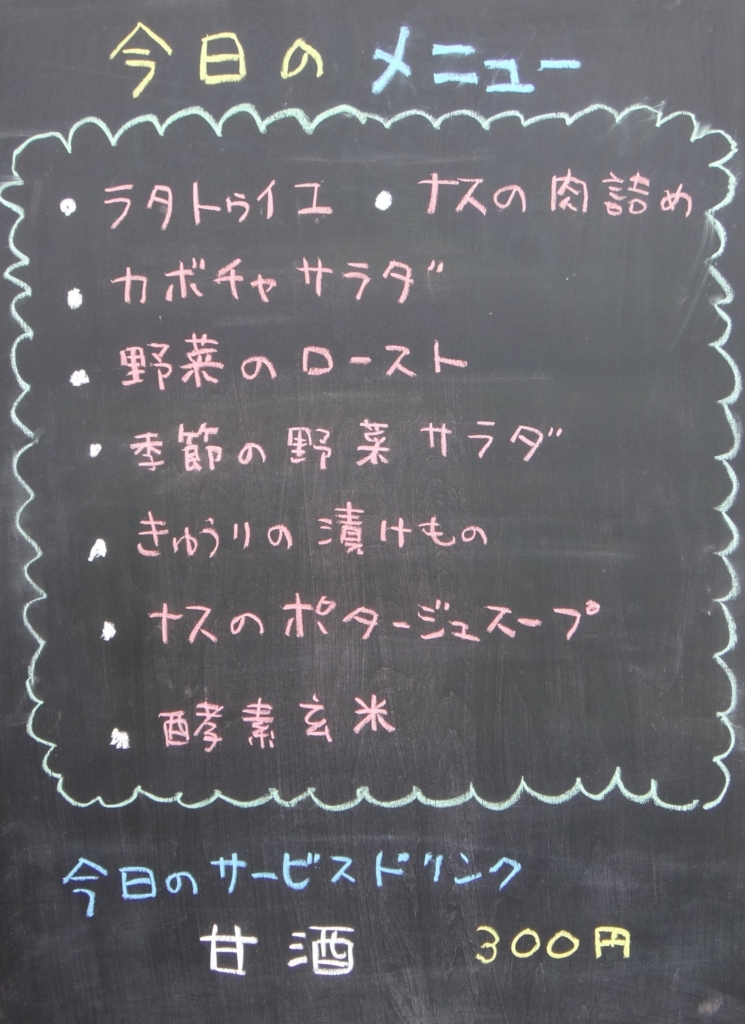 今日のメニュー
・ラタトゥイエ ・ナスの肉詰め
・カボチャサラダ
・野菜のロースト
・季節の野菜サラダ
・きゅうりの漬けもの
・ナスのポタージュスープ
・酵素玄米
今日のサービスドリンク
甘酒 300円